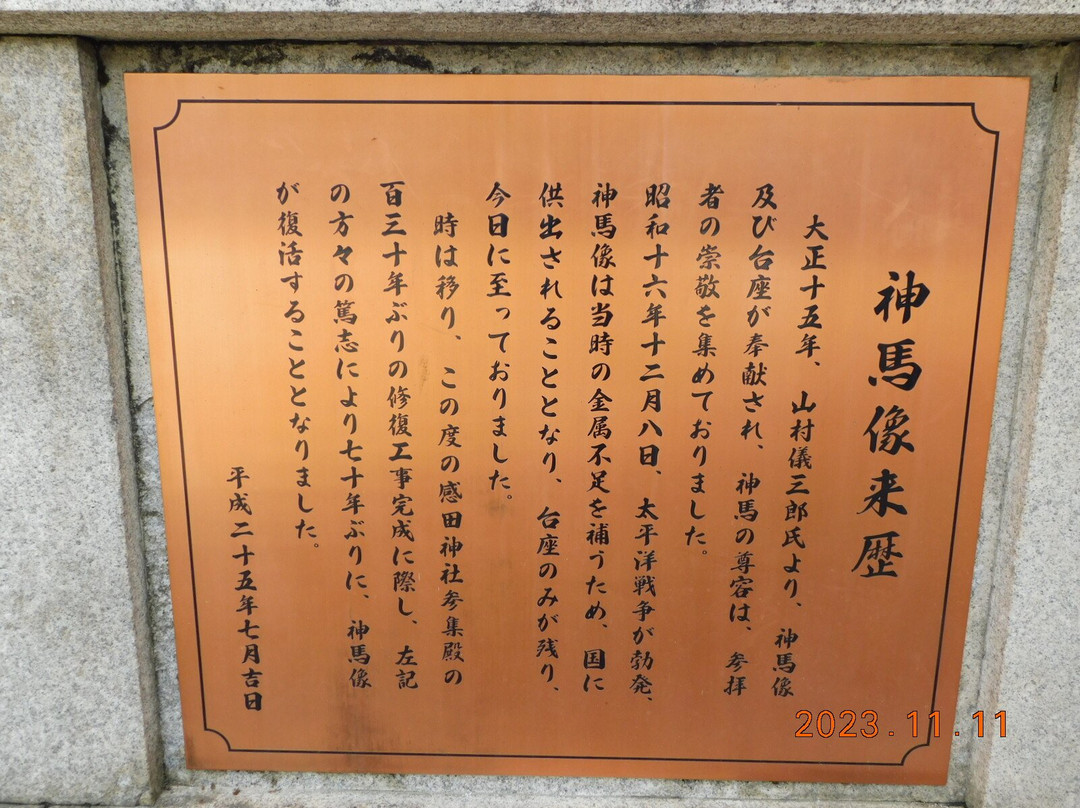 神馬像来歴
大正十五年、山村儀三郎氏より、神馬像
及び台座が奉献され、神馬の尊容は、参拝
者の崇敬を集めておりました。
昭和十六年十二月八日、太平洋戦争が勃発、
神馬像は当時の金属不足を補うため、国に
供出されることとなり、台座のみが残り、
今日に至っておりました。
時は移り、この度の感田神社参集殿の
百三十年ぶりの修復工事完成に際し、左記
の方々の篤志により七十年ぶりに、神馬像
が復活することとなりました。
平成二十五年七月吉日
2023.11.11